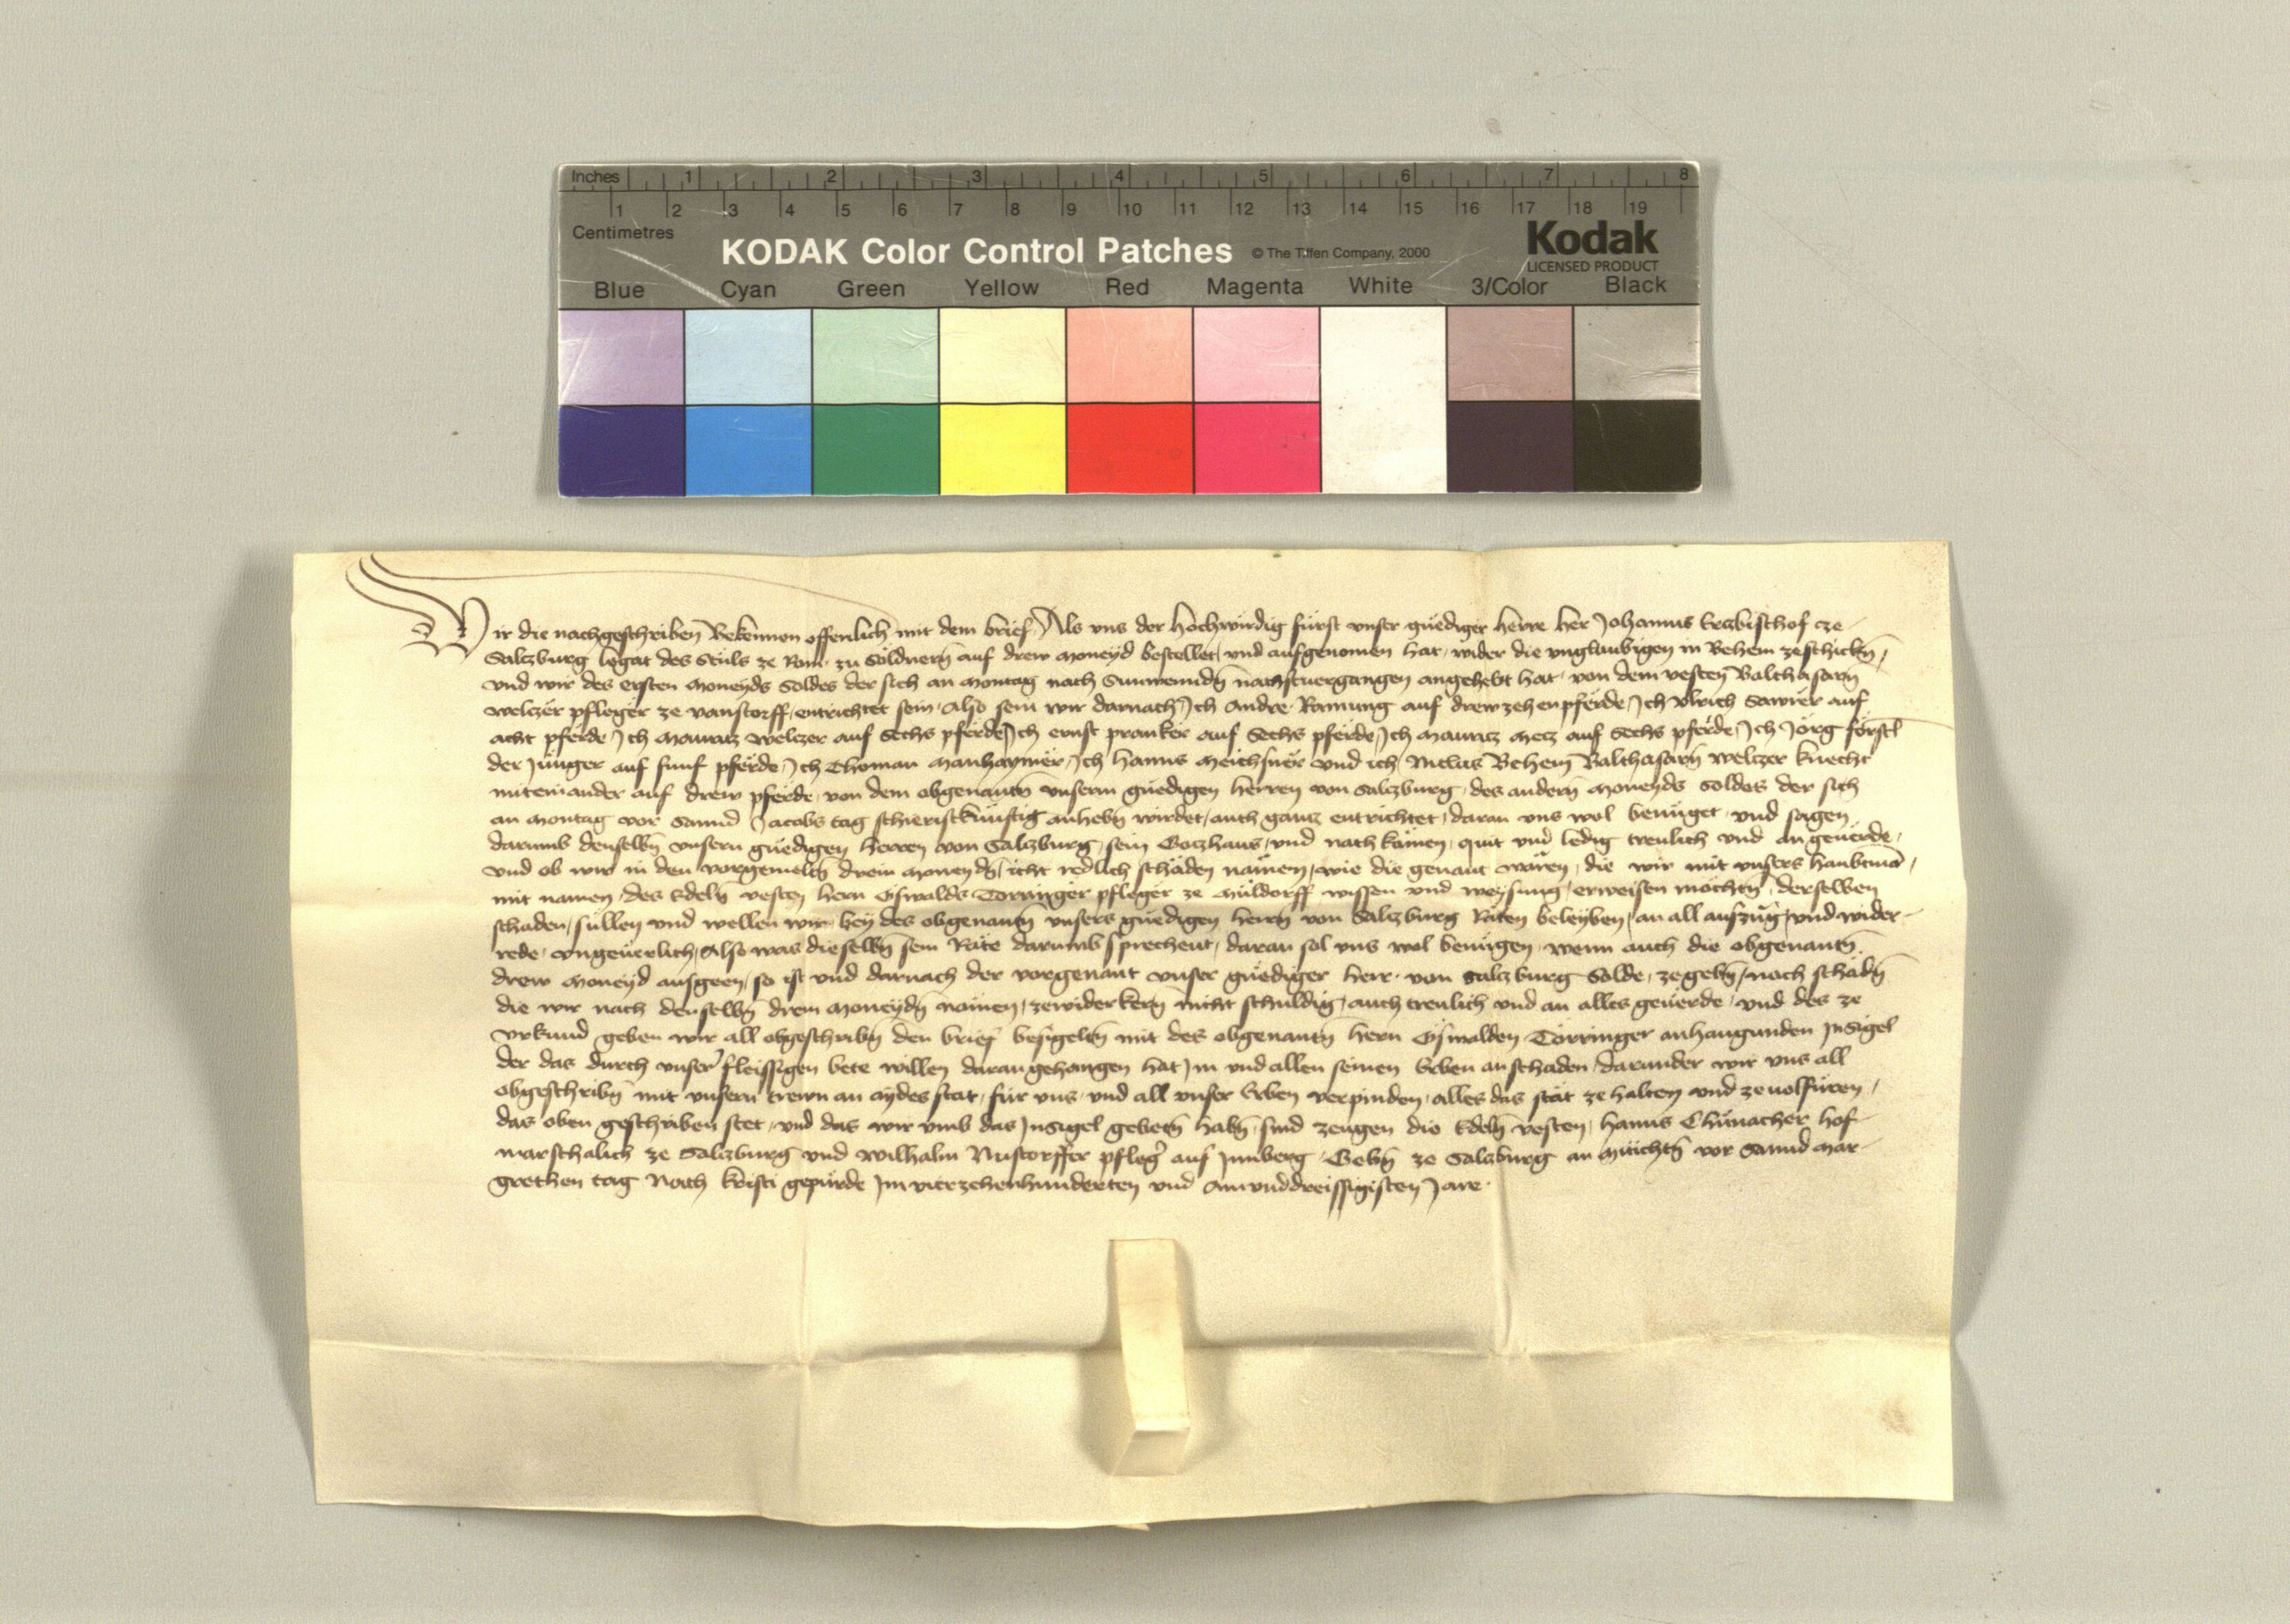 Inches 1 2 3 4 5 6 7 8
1 2 3 4 5 6 7 8 9 10 11 12 13 14 15 16 17 18 19
Centimetres
KODAK Color Control Patches © The Tiffen Company, 2000 Kodak
LICENSED PRODUCT
Blue Cyan Green Yellow Red Magenta White 3/Color Black
Wir die nachgeschriben Bekennen offenlich mit dem brief Als vns der Hochwirdig fürst vnser gnediger herre her Johanns Erczbischof cze
Salczburg legat des Stuls ze Rom zu Soldnern auf drew moneyd bestellet vnd aufgenomen hat wider die vnglaubigen in Behem zeschickn
vnd wir des ersten moneyds soldes der sich an montag nach Sunwenndn nachstuergangen angehebt hat von dem vesten Balthasarn
welczer pfleger ze vanstorff entrichtet sein Also sein wir darnach Ich Andre Ramung auf drewzehen pferde Ich Vlrich Sawrer auf
acht pferde Ich Mauricz welczer auf Sechs pferde Ich ernst pranker auf Sechs pferde Ich mauricz metz auf Sechs pferde Ich Jörg förstl
der Jünger auf funf pferde Ich Thoman Manhaymer Ich Hanns Meichsner vnd ich Niclas Behem Balthasarn welczer knecht
miteinander auf drew pferde von dem obgenantn vnserm gnedigen herren von Salczburg des andern moneyds soldes der sich
an montag vor Sannd Jacobs tag schieristkünftig anhebn wirdet auch gancz entrichtet daran vns wol benüget vnd sagen
darumb denselbn vnsern gnedigen herren von Salczburg sein Gotzhaus vnd nachkomen quit vnd ledig treulich vnd an geuerde
vnd ob wir in den vorgemeltn drein moneydn icht redlich schäden nämen wie die genant wären die wir mit vnsers haubtman
mit namen des Edeln vesten hern Oswalds Torringer pfleger ze Müldorff wissen vnd weysung erweisen möchtn derselben
schaden süllen vnd wellen wir bey des obgenantn vnsers gnedigen herrn von Salczburg Räten beleyben an all aufzüg vnd wider
rede vngeuerlich Also was dieselbn sein Räte darumb sprechent daran sol vns wol benügen wenn auch die obgenantn
drew moneyd ausgeen so ist vnd darnach der vorgenant vnser gnediger herr von Salczburg Solde zegebn noch schädn
die wir nach denselbn drein moneydn nämen zewiderkern nicht schuldig auch treulich vnd an alles geuerde vnd des ze
vrkund geben wir all obgeschribn den brief besigeltn mit des obgenantn hern Oswalden Törringer anhangunden Insigel
der das durch vnser fleissigen bete willen darangehangen hat Im vnd allen seinen Erben anschaden darunder wir vns all
obgeschribn mit vnsern trewn an aydes stat für vns vnd all vnser Erben verpinden alles das stät ze halten vnd zeuolfüren
das oben geschriben stet vnd das wir vmb das Insigel gebetn habn sind zeugen die Edeln vesten Hanns Chünacher hof
marschalich ze Salczburg vnd Wilhalm Nustorffer pfleger auf Gebn ze Salczburg an Mitichtn vor Sannd Mar
grethen tag Nach kristi gepürde Im vierzehenhunderten vnd ainvnddreissigisten Jare